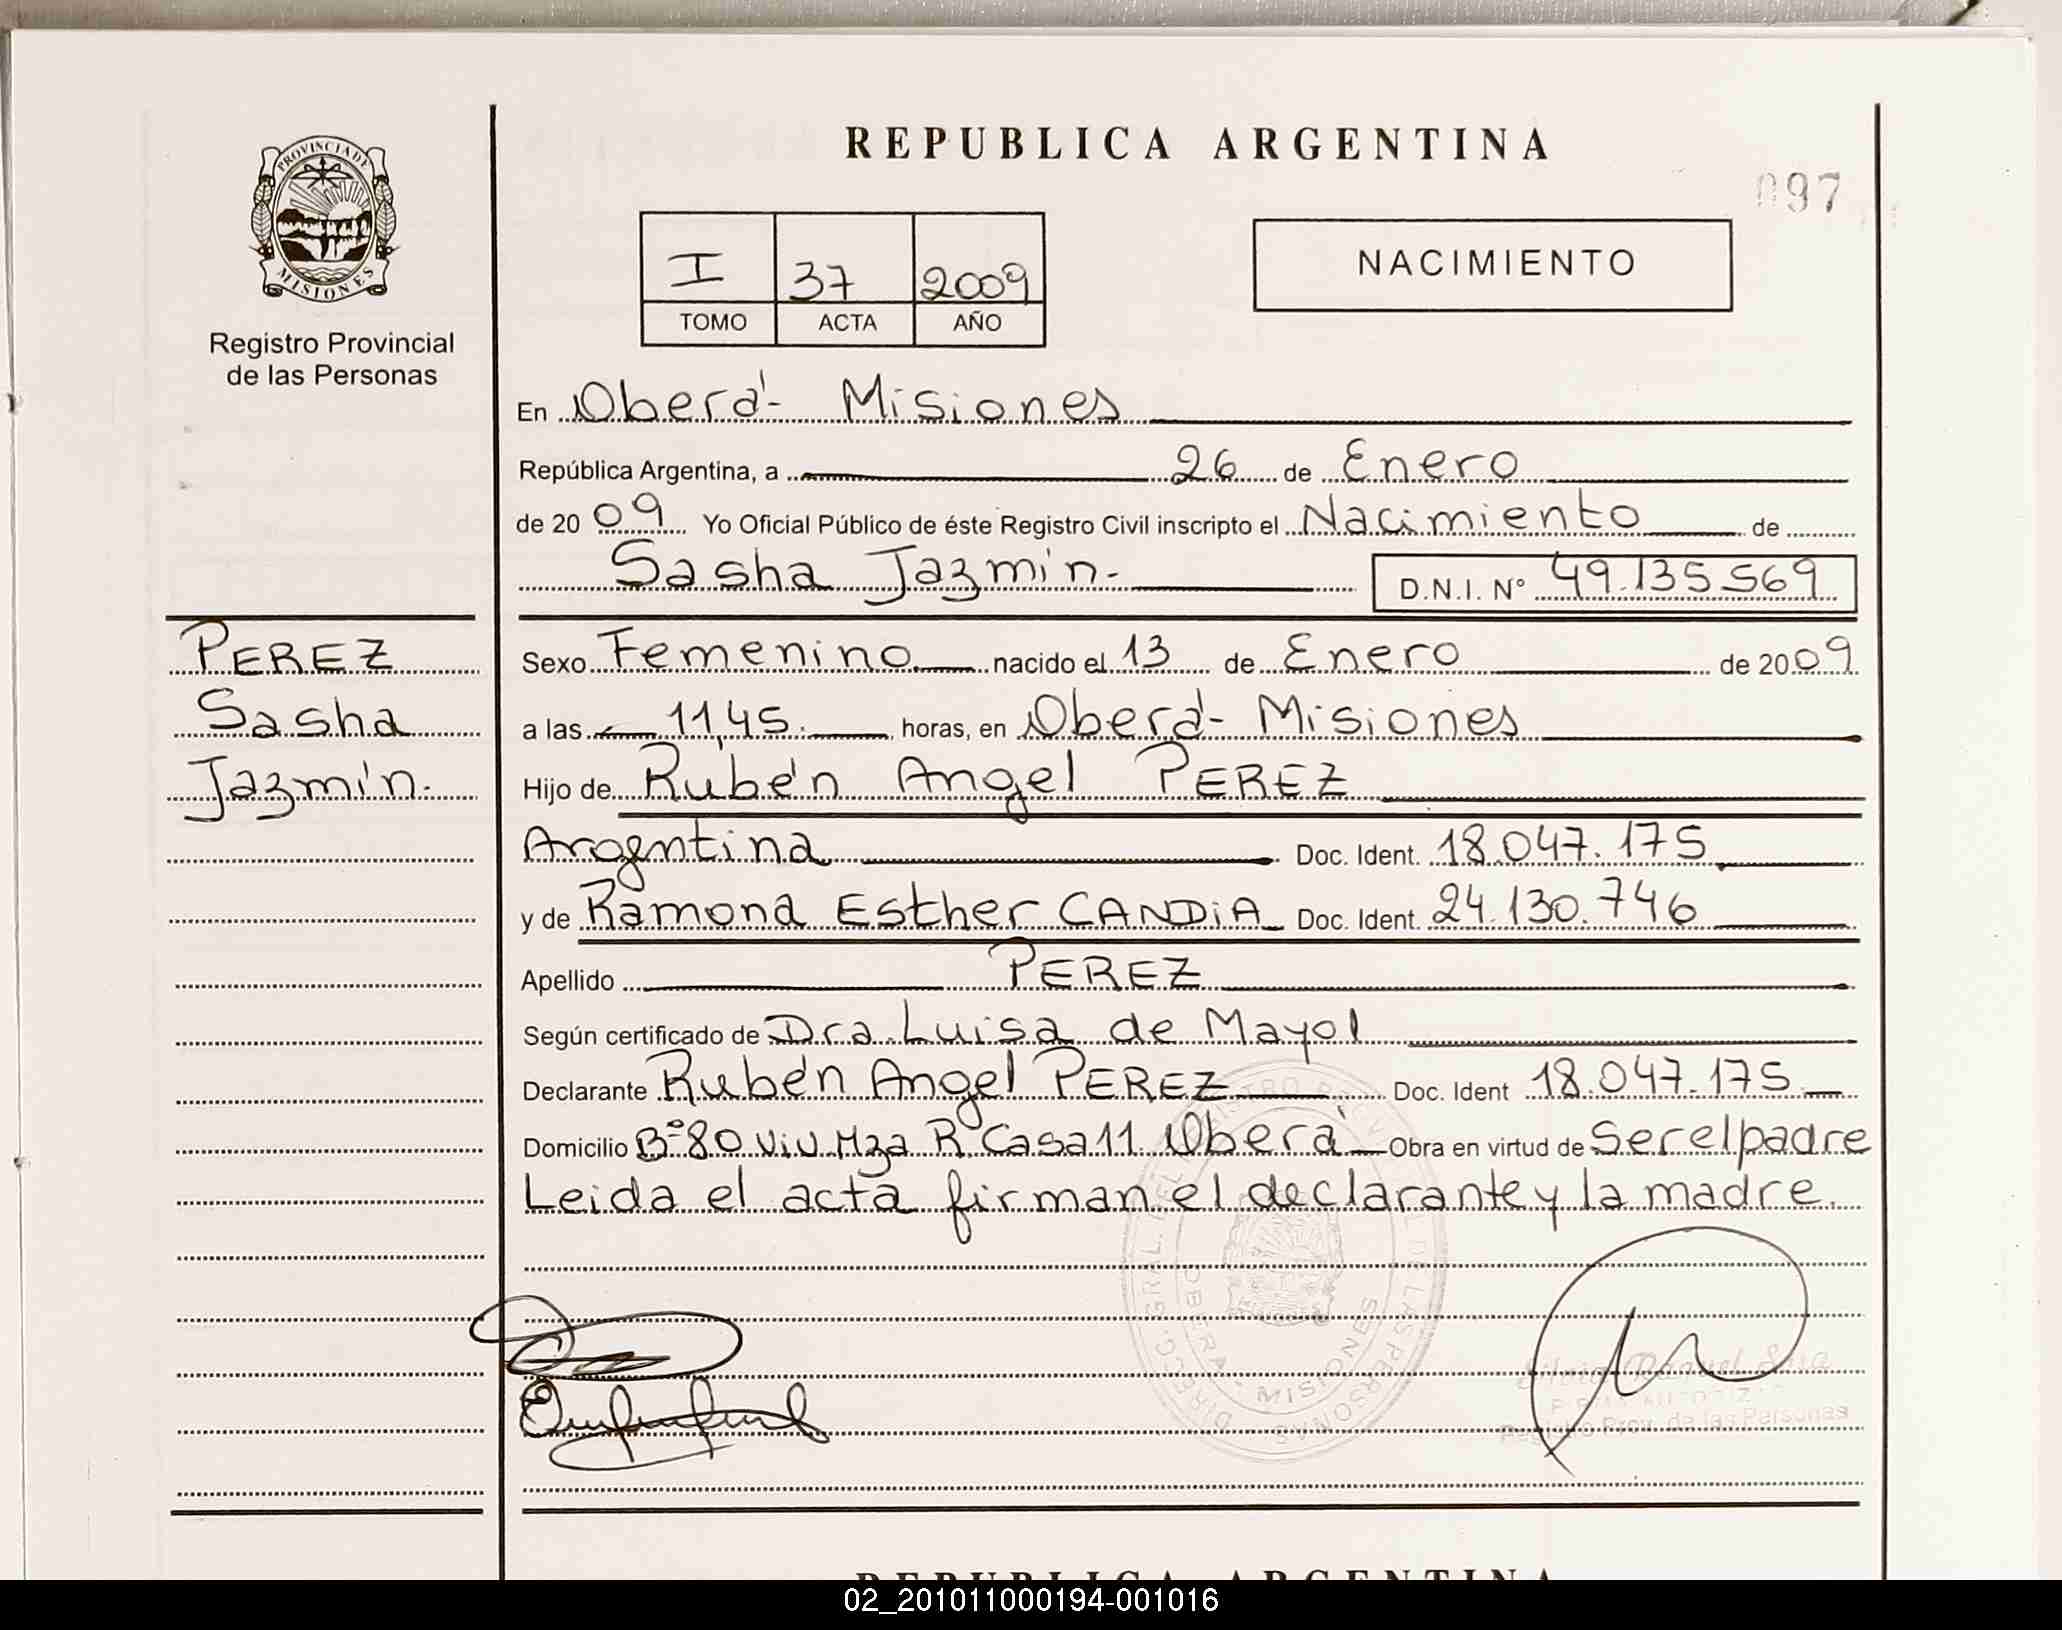 REPUBLICA ARGENTINA
097
PROVINCIA DE
MISIONES
Registro Provincial
de las Personas
I 37 2009
TOMO ACTA AÑO
NACIMIENTO
En Oberá- Misiones
República Argentina, a 26 de Enero
de 2009 Yo Oficial Público de éste Registro Civil inscripto el Nacimiento de
Sasha Jazmín.- D.N.I. Nº 49.135.569
PEREZ
Sasha
Jazmín.-
Sexo Femenino nacido el 13 de Enero de 2009
a las 11,45. horas, en Oberá- Misiones
Hijo de Rubén Angel PEREZ
Argentina Doc. Ident. 18.047.175
y de Ramona Esther CANDIA Doc. Ident. 24.130.746
Apellido PEREZ
Según certificado de Dra. Luisa de Mayol
Declarante Rubén Angel PEREZ Doc. Ident 18.047.175
Domicilio Bº 80 Viv. Mza R Casa 11. Oberá Obra en virtud de Ser el padre
Leida el acta firman el declarante y la madre.
DIRECC. GRAL. DEL REGISTRO PROV. DE LAS PERSONAS
OBERA - MISIONES
Registro Prov. de las Personas
REPUBLICA ARGENTINA
02_201011000194-001016